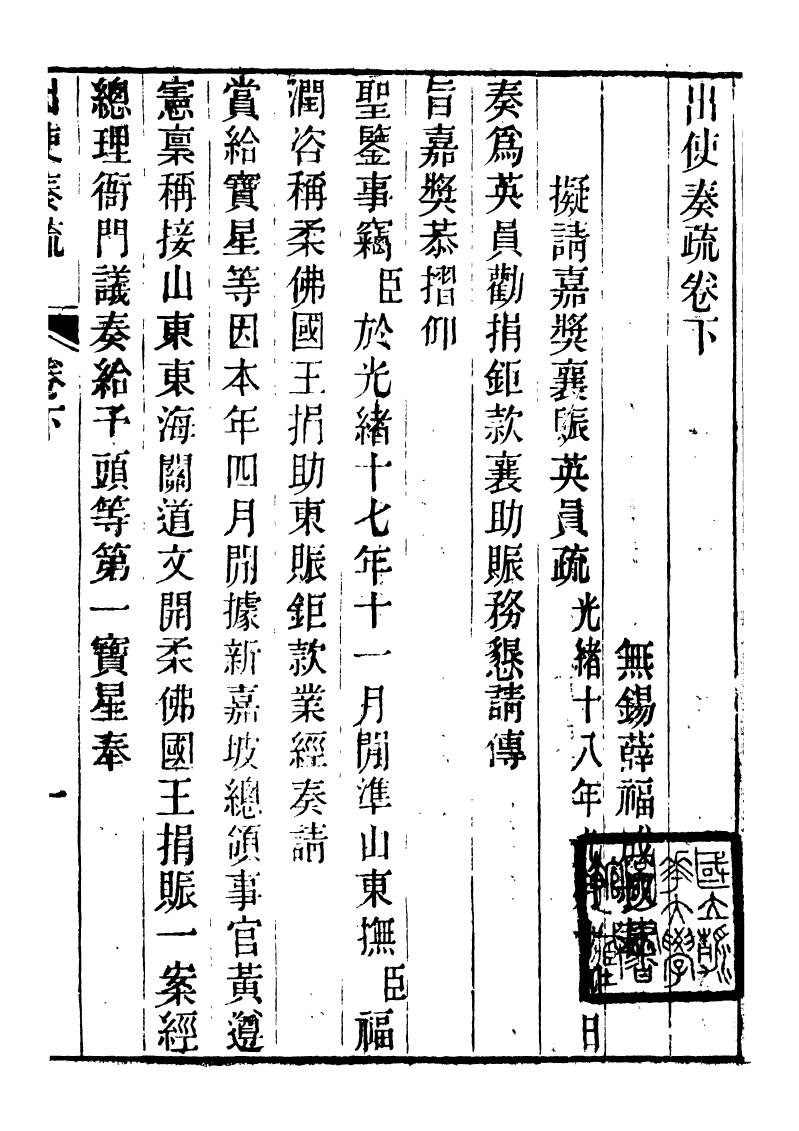 出使奏疏卷下
無錫薛福成
擬請嘉獎襄賑英員疏光緒十八年 日
奏為英員勸捐鉅款襄助賑務懇請傳
旨嘉獎恭摺仰
聖鑒事竊臣於光緒十七年十一月閒準山東撫臣福
潤咨稱柔佛國王捐助東賑鉅款業經奏請
賞給寶星等因本年四月閒據新嘉坡總領事官黃遵
憲稟稱接山東東海關道文開柔佛國王捐賑一案經
總理衙門議奏給予頭等第一寶星奉
出使奏疏
卷下
一
國立清華大學